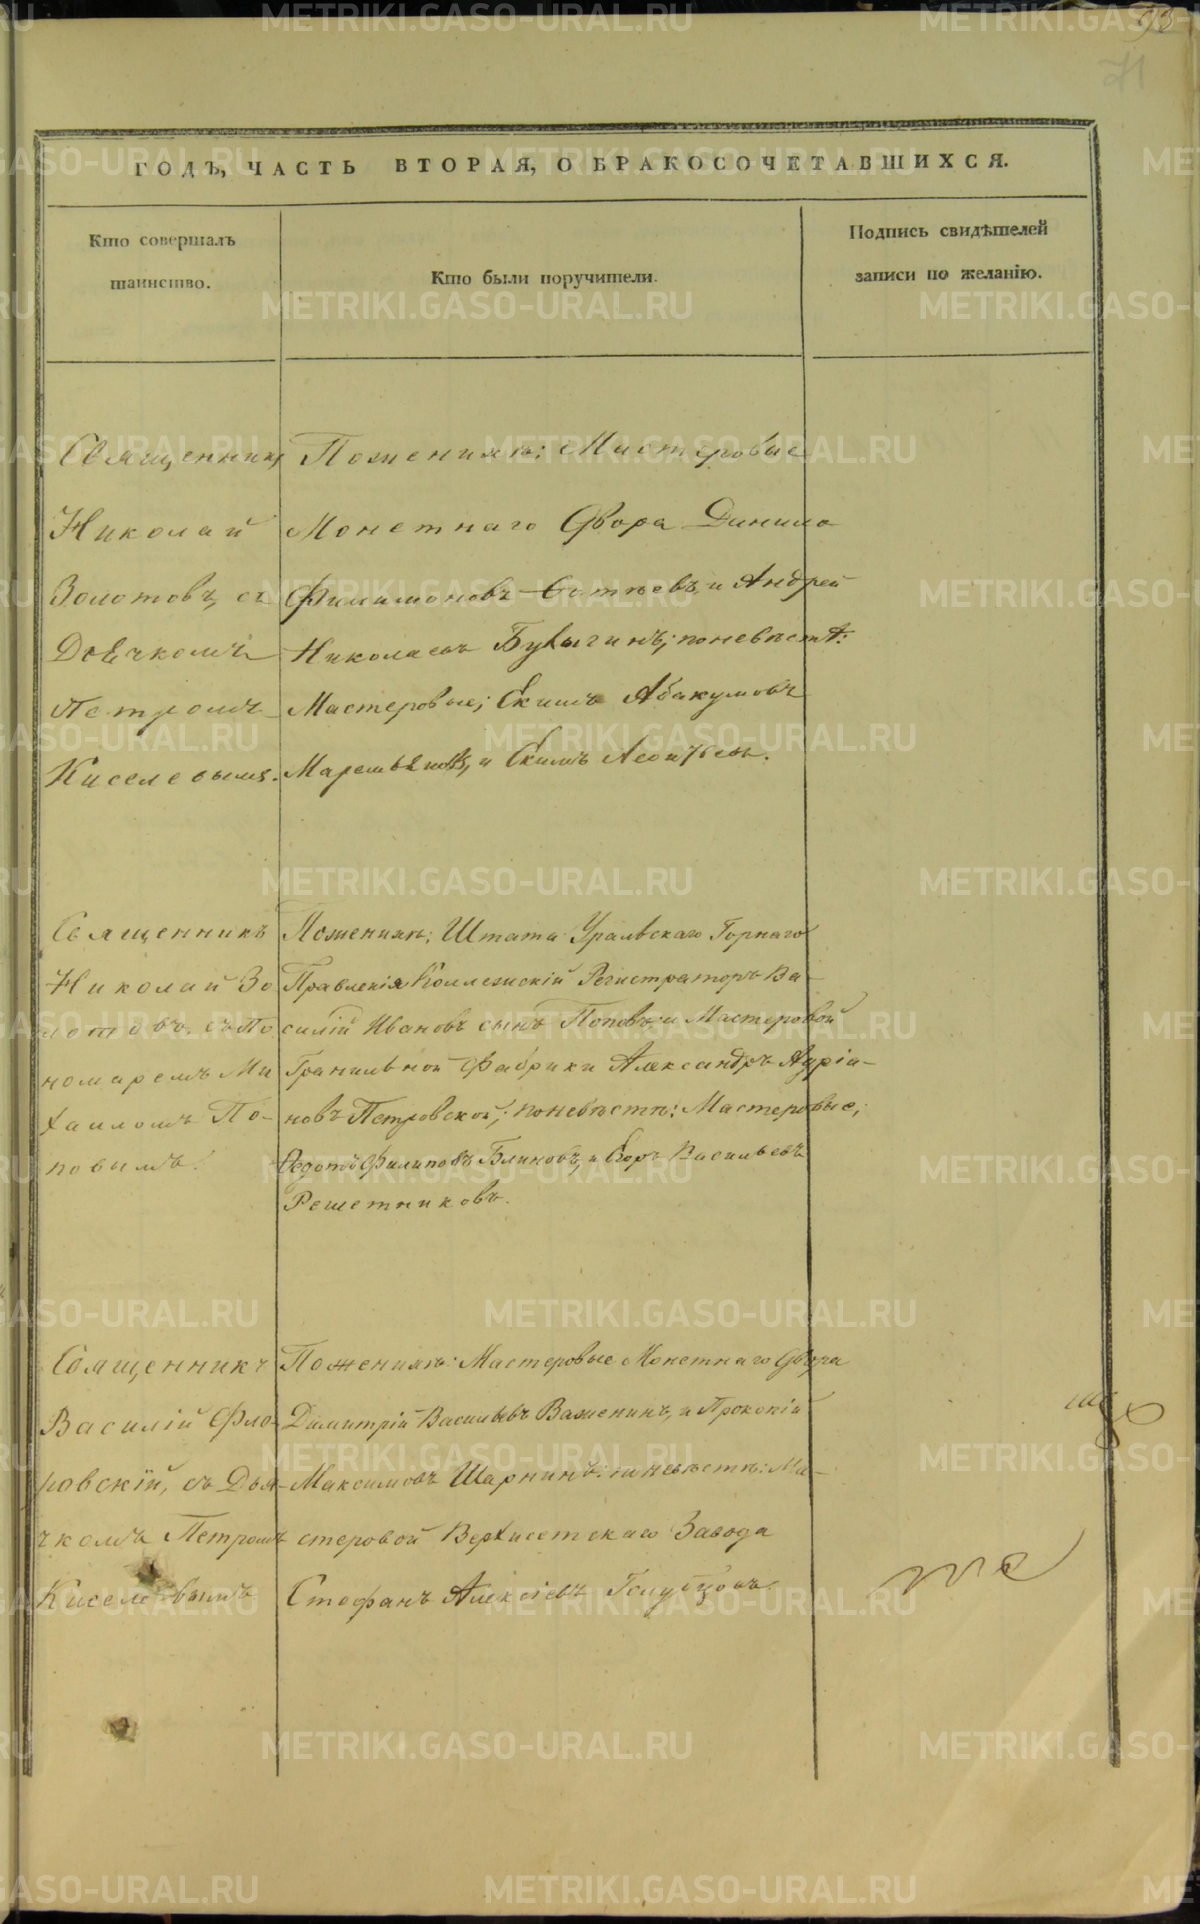 93
71
ГОДЪ, ЧАСТЬ ВТОРАЯ, О БРАКОСОЧЕТАВШИХСЯ.
Кто совершалъ
таинство.
Кто были поручители.
Подпись свидѣтелей
записи по желанію.
Священникъ
Николай
Золотовъ, съ
Дьячкомъ
Петромъ
Киселевымъ.
Поженихѣ: Мастеровые
Монетнаго Двора Данило
Филимоновъ и Андрей
Николаевъ Булыгинъ; поневѣстѣ:
Мастеровые; Екимъ Абакумовъ
и Екимъ Леонтьевъ.
Священникъ
Николай Зо
лотовъ, съ По
номаремъ Ми
хаиломъ По-
повымъ.
Поженихѣ: Штата Уральскаго Горнаго
Правленія Коллежскій Регистраторъ Ва-
силій Ивановъ сынъ Поповъ, и Мастеровой
Гранильной Фабрики Александръ Адріа-
новъ Петровской; поневѣстѣ: Мастеровые;
Федотъ Филиповъ Блиновъ, и Егоръ Васильевъ
Решетниковъ.
Священникъ
Василій Фло-
ровскій, съ Дья-
чкомъ Петромъ
Киселевымъ
Поженихѣ: Мастеровые Монетнаго Двора
Димитрій Васильевъ Важенинъ, и Прокопій
Максимовъ Шарнинъ: поневѣстѣ: Ма-
стеровой Верхисетскаго Завода
Стефанъ Алексѣевъ Голубцовъ.
METRIKI.GASO-URAL.RU